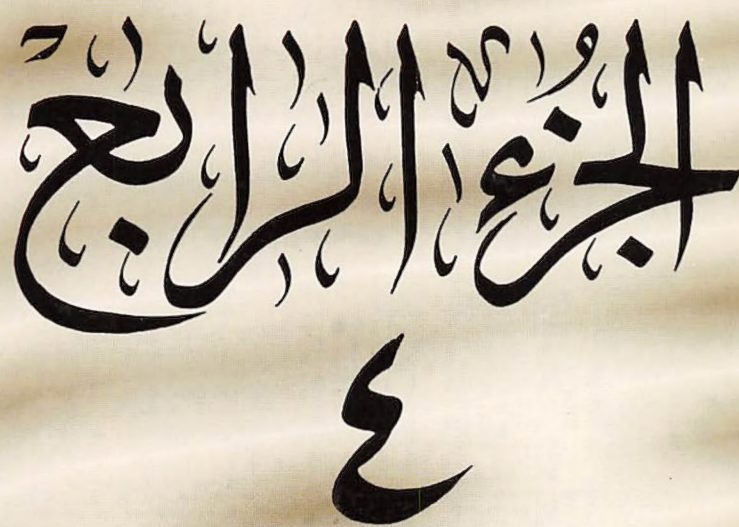 الجزء الرابع
٤